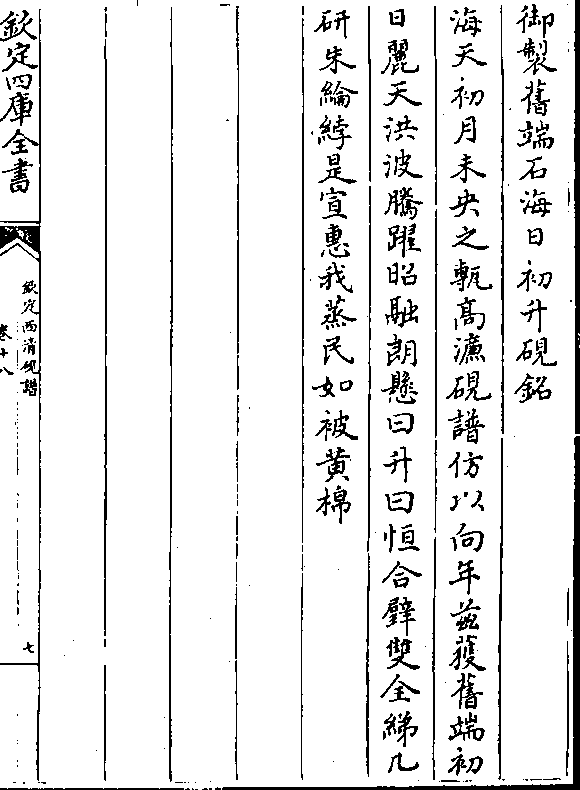 御製舊端石海日初升硯銘
海天初月未央之甎高濂硯譜仿以向年茲獲舊端初
日麗天洪波騰躍昭融朗懸曰升曰恒合璧雙全綈几
研朱綸綍是宣惠我蒸民如被黄棉
欽定四庫全書
欽定西清硯譜
卷十八
七